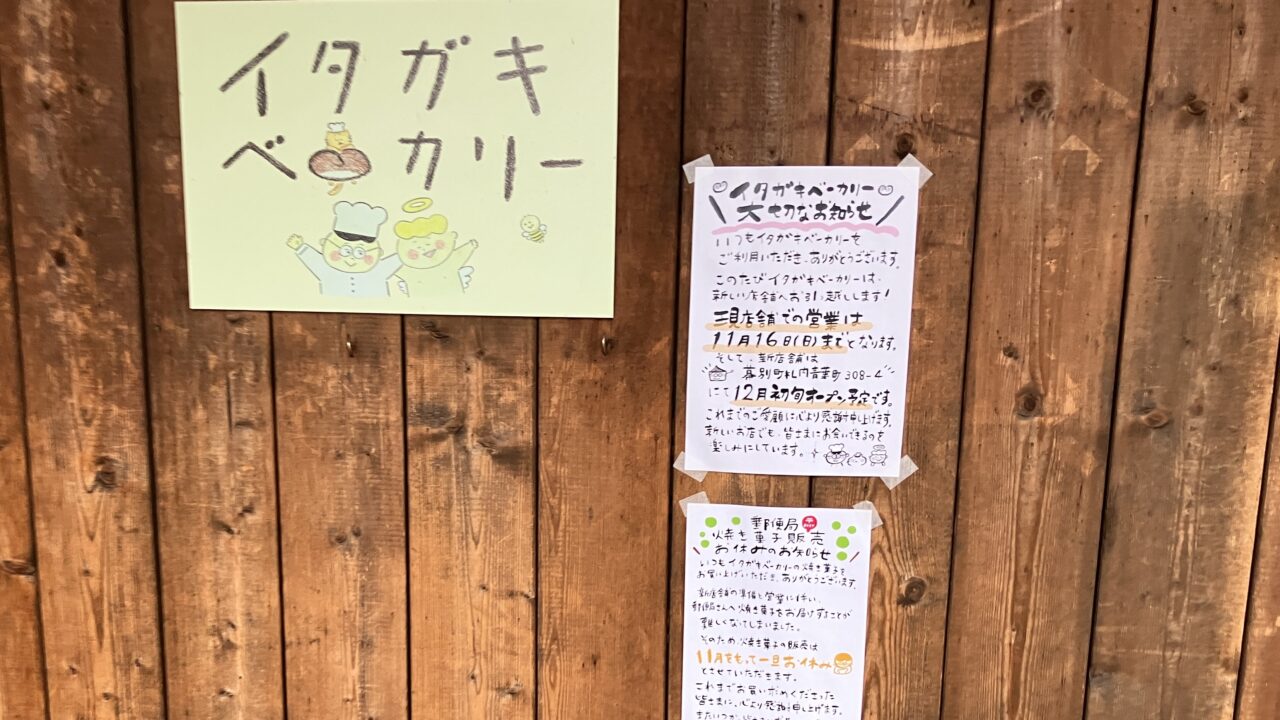 イタガキ
ベーカリー
イタガキベーカリー
大切なお知らせ
いつもイタガキベーカリーを
ご利用いただき、ありがとうございます。
このたびイタガキベーカリーは、
新しい店舗へお引っ越しします!
現店舗での営業は
11月16日(日)までとなります。
そして、新店舗は
幕別町札内青葉町308-4
にて12月初旬オープン予定です。
これまでのご愛顧に心より感謝申し上げます。
新しいお店でも、皆さまにお会いできるのを
楽しみにしています。
郵便局
焼き菓子販売
お休みのお知らせ
いつもイタガキベーカリーの焼き菓子を
お買い上げいただき、ありがとうございます。
新店舗の準備と営業に伴い、
郵便局さんへ焼き菓子をお届けすることが
難しくなってしまいました。
そのため、焼き菓子の販売は
11月をもって一旦お休み
とさせていただきます。
これまでお買い求めくださった
皆さまに、心より感謝申し上げます。